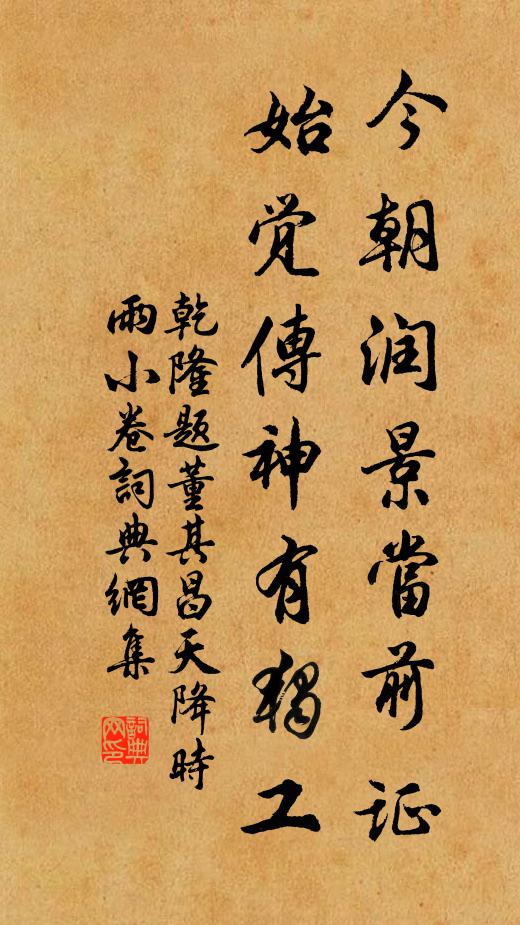 今朝润景當前证
始觉傳神有獨工
乾隆题董其昌天降時
雨小卷詞典網集
詞典
网印